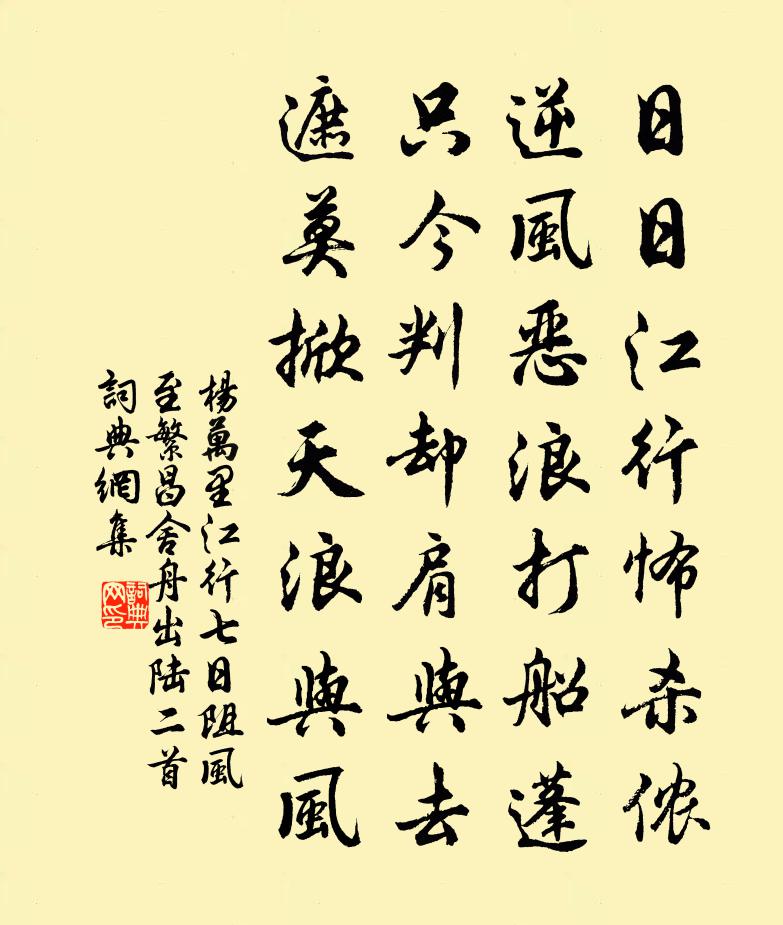 日日江行怖杀侬
逆風恶浪打船蓬
只今判却肩輿去
遮莫掀天浪與風
楊萬里江行七日阻風
至繁昌舍舟出陆二首
詞典網集
詞典网印